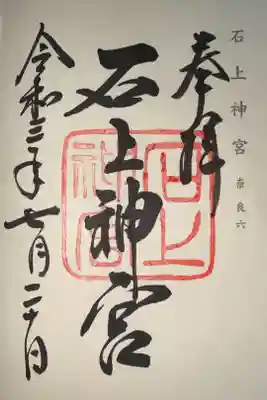 石上神宮 奈良六
奉拝
石上神宮
石上神宮
令和三年七月二十日